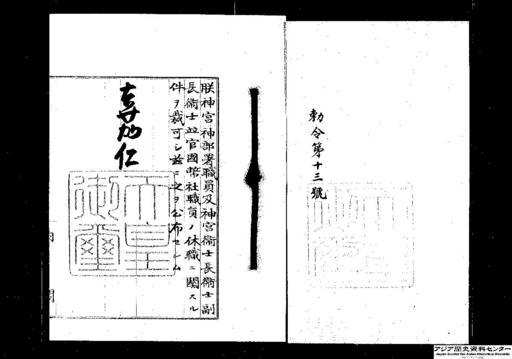 勅令第十三號
朕神宮神部署職員及神宮衞士長衞士副
長衞士竝官國幣社職員ノ休職ニ關スル
件ヲ裁可シ茲ニ之ヲ公布セシム
嘉仁
天皇
御璽
内
閣
アジア歴史資料センター
Japan Center for Asian Historical Records